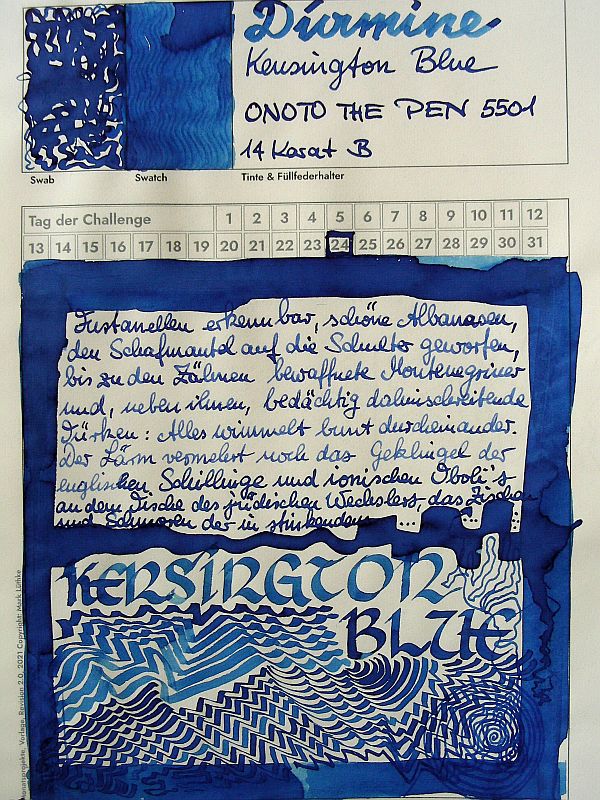 Diamine
Kensington Blue
ONOTO THE PEN 5501
14 Karat B
Swab
Swatch
Tinte & Füllfederhalter
Tag der Challenge 1 2 3 4 5 6 7 8 9 10 11 12
13 14 15 16 17 18 19 20 21 22 23 24 25 26 27 28 29 30 31
Fustanellen erkennbar, schöne Albanesen,
den Schafmantel auf die Schulter geworfen,
bis zu den Zähnen bewaffnete Montenegriner
und, neben ihnen, bedächtig dahinschreitende
Türken: Alles wimmelt bunt durcheinander.
Der Lärm vermehrt noch das Geklingel der
englischen Schillinge und ionischen Oboli's
an dem Tische des jüdischen Wechslers, das Zischen
und Schmoren der in stinkendem ........
KENSINGTON
BLUE
Monatsprojekte, Vorlage, Revision 2.0, 2021 Copyright: Mark Lüthke